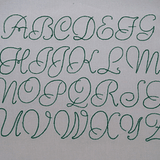 ABCDEFG
HIJKLM
NOPQRSI
UVWXYZ